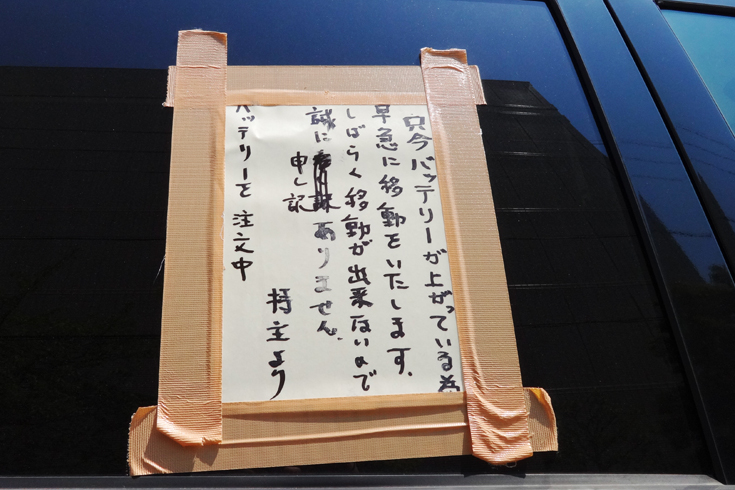 只今バッテリーが上がっている為
早急に移動をいたします.
しばらく移動が出来ないので
誠に申し記ありません.
持主より
バッテリーを注文中